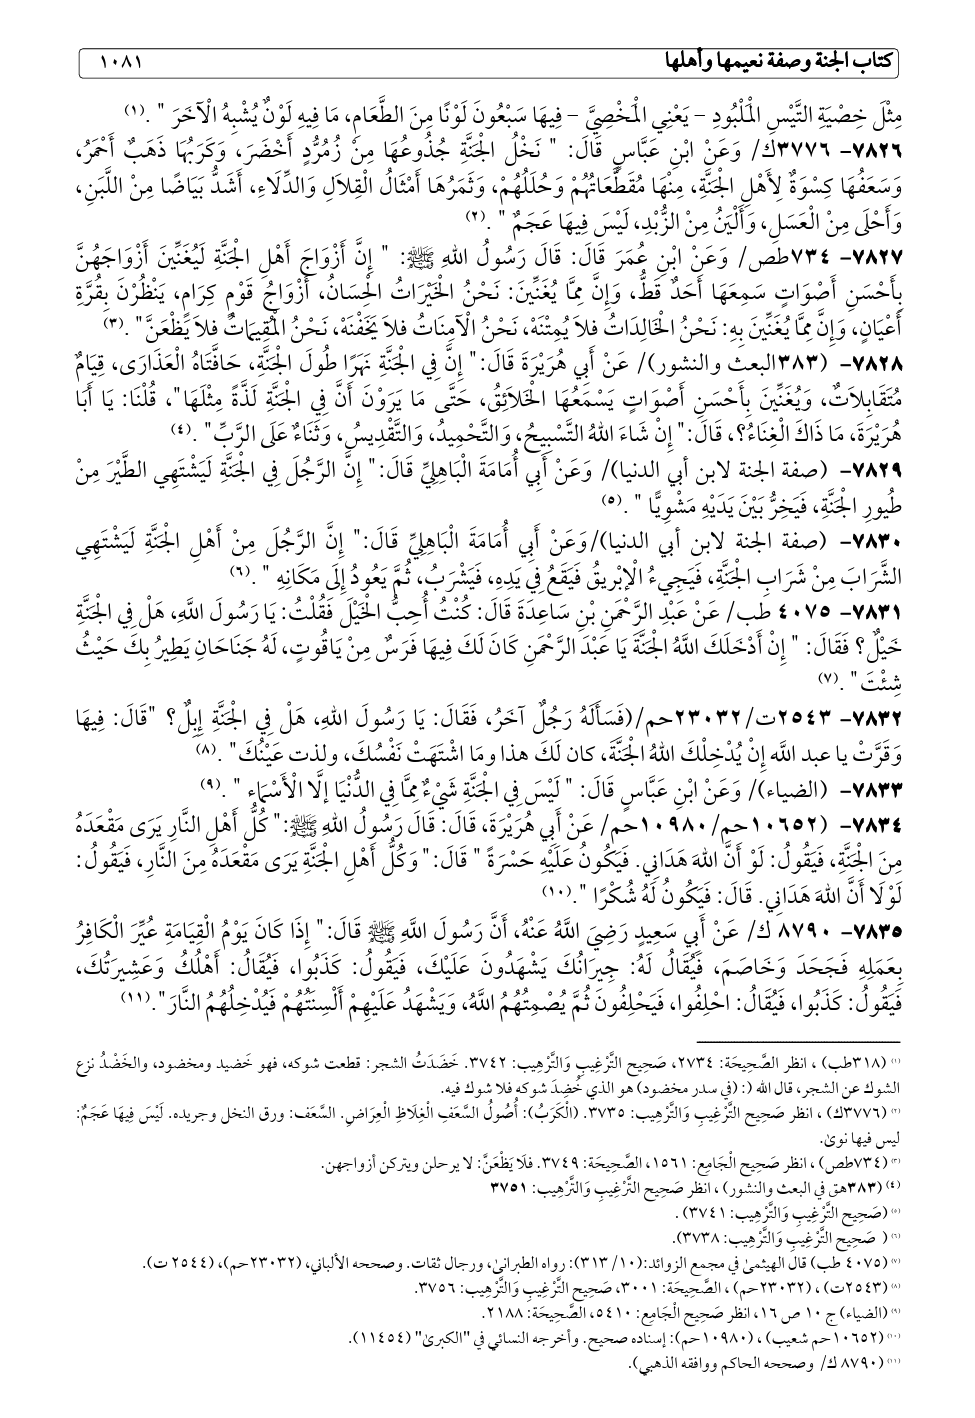 كتاب الجنة وصفة نعيمها وأهلها ١٠٨١
مِثْلَ خِصْيَةِ التَّيْسِ الْمَلْبُودِ – يَعْنِي الْمَخْصِيَّ – فِيهَا سَبْعُونَ لَوْنًا مِنَ الطَّعَامِ، مَا فِيهِ لَوْنٌ يُشْبِهُ الْآخَرَ " .(١)
٧٨٢٦- ٣٧٧٦ك/ وَعَنْ ابْنِ عَبَّاسٍ قَالَ: " نَخْلُ الْجَنَّةِ جُذُوعُهَا مِنْ زُمُرُّدٍ أَخْضَرَ، وَكَرَبُهَا ذَهَبٌ أَحْمَرُ،
وَسَعَفُهَا كِسْوَةٌ لِأَهْلِ الْجَنَّةِ، مِنْهَا مُقَطَّعَاتُهُمْ وَحُلَلُهُمْ، وَثَمَرُهَا أَمْثَالُ الْقِلَالِ وَالدِّلَاءِ، أَشَدُّ بَيَاضًا مِنْ اللَّبَنِ،
وَأَحْلَى مِنْ الْعَسَلِ، وَأَلْيَنُ مِنْ الزُّبْدِ، لَيْسَ فِيهَا عَجَمٌ " .(٢)
٧٨٢٧- ٧٣٤طص/ وَعَنْ ابْنِ عُمَرَ قَالَ: قَالَ رَسُولُ اللهِ ﷺ: " إِنَّ أَزْوَاجَ أَهْلِ الْجَنَّةِ لَيُغَنِّينَ أَزْوَاجَهُنَّ
بِأَحْسَنِ أَصْوَاتٍ سَمِعَهَا أَحَدٌ قَطُّ، وَإِنَّ مِمَّا يُغَنِّينَ: نَحْنُ الْخَيْرَاتُ الْحِسَانُ، أَزْوَاجُ قَوْمٍ كِرَامٍ، يَنْظُرْنَ بِقُرَّةِ
أَعْيَانٍ، وَإِنَّ مِمَّا يُغَنِّينَ بِهِ: نَحْنُ الْخَالِدَاتُ فلاَ يُمِتْنَهْ، نَحْنُ الْآمِنَاتُ فلاَ يَخَفْنَهْ، نَحْنُ الْمُقِيمَاتُ فلاَ يَظْعَنَّ" .(٣)
٧٨٢٨- (٣٨٣البعث والنشور)/ عَنْ أَبِي هُرَيْرَةَ قَالَ:" إِنَّ فِي الْجَنَّةِ نَهَرًا طُولَ الْجَنَّةِ، حَافَّتَاهُ الْعَذَارَى، قِيَامٌ
مُتَقَابِلَاتٌ، وَيُغَنِّينَ بِأَحْسَنِ أَصْوَاتٍ يَسْمَعُهَا الْخَلَائِقُ، حَتَّى مَا يَرَوْنَ أَنَّ فِي الْجَنَّةِ لَذَّةً مِثْلَهَا"، قُلْنَا: يَا أَبَا
هُرَيْرَةَ، مَا ذَاكَ الْغِنَاءُ؟، قَالَ:" إِنْ شَاءَ اللهُ التَّسْبِيحُ، وَالتَّحْمِيدُ، وَالتَّقْدِيسُ، وَثَنَاءٌ عَلَى الرَّبِّ" .(٤)
٧٨٢٩- (صفة الجنة لابن أبي الدنيا)/ وَعَنْ أَبِي أُمَامَةَ الْبَاهِلِيِّ قَالَ:" إِنَّ الرَّجُلَ فِي الْجَنَّةِ لَيَشْتَهِي الطَّيْرَ مِنْ
طُيورِ الْجَنَّةِ، فَيَخِرُّ بَيْنَ يَدَيْهِ مَشْوِيًّا " .(٥)
٧٨٣٠- (صفة الجنة لابن أبي الدنيا)/وَعَنْ أَبِي أُمَامَةَ الْبَاهِلِيِّ قَالَ:" إِنَّ الرَّجُلَ مِنْ أَهْلِ الْجَنَّةِ لَيَشْتَهِي
الشَّرَابَ مِنْ شَرَابِ الْجَنَّةِ، فَيَجِيءُ الْإِبْرِيقُ فَيَقَعُ فِي يَدِهِ، فَيَشْرَبُ، ثُمَّ يَعُودُ إِلَى مَكَانِهِ " .(٦)
٧٨٣١- ٤٠٧٥ طب/ عَنْ عَبْدِ الرَّحْمَنِ بْنِ سَاعِدَةَ قَالَ: كُنْتُ أُحِبُّ الْخَيْلَ فَقُلْتُ: يَا رَسُولَ اللَّهِ، هَلْ فِي الْجَنَّةِ
خَيْلٌ؟ فَقَالَ: " إِنْ أَدْخَلَكَ اللَّهُ الْجَنَّةَ يَا عَبْدَ الرَّحْمَنِ كَانَ لَكَ فِيهَا فَرَسٌ مِنْ يَاقُوتٍ، لَهُ جَنَاحَانِ يَطِيرُ بِكَ حَيْثُ
شِئْتَ" .(٧)
٧٨٣٢- ٢٥٤٣ت/٢٣٠٣٢حم/(فَسَأَلَهُ رَجُلٌ آخَرُ، فَقَالَ: يَا رَسُولَ اللهِ، هَلْ فِي الْجَنَّةِ إِبِلٌ؟ "قَالَ: فِيهَا
وَقَرَّتْ يا عبد اللَّه إِنْ يُدْخِلْكَ اللهُ الْجَنَّةَ، كان لَكَ هذا ومَا اشْتَهَتْ نَفْسُكَ، ولذت عَيْنُكَ" .(٨)
٧٨٣٣- (الضياء)/ وَعَنْ ابْنِ عَبَّاسٍ قَالَ: " لَيْسَ فِي الْجَنَّةِ شَيْءٌ مِمَّا فِي الدُّنْيَا إلَّا الْأَسْمَاء " .(٩)
٧٨٣٤- (١٠٦٥٢حم/١٠٩٨٠حم/ عَنْ أَبِي هُرَيْرَةَ، قَالَ: قَالَ رَسُولُ اللهِ ﷺ:" كُلُّ أَهْلِ النَّارِ يَرَى مَقْعَدَهُ
مِنَ الْجَنَّةِ، فَيَقُولُ: لَوْ أَنَّ اللهَ هَدَانِي. فَيَكُونُ عَلَيْهِ حَسْرَةً " قَالَ:" وَكُلُّ أَهْلِ الْجَنَّةِ يَرَى مَقْعَدَهُ مِنَ النَّارِ، فَيَقُولُ:
لَوْلَا أَنَّ اللهَ هَدَانِي. قَالَ: فَيَكُونُ لَهُ شُكْرًا ".(١٠)
٧٨٣٥- ٨٧٩٠ ك/ عَنْ أَبِي سَعِيدٍ رَضِيَ اللَّهُ عَنْهُ، أَنَّ رَسُولَ اللَّهِ ﷺ قَالَ:" إِذَا كَانَ يَوْمُ الْقِيَامَةِ عُيِّرَ الْكَافِرُ
بِعَمَلِهِ فَجَحَدَ وَخَاصَمَ، فَيُقَالُ لَهُ: جِيرَانُكَ يَشْهَدُونَ عَلَيْكَ، فَيَقُولُ: كَذَبُوا، فَيُقَالُ: أَهْلُكَ وَعَشِيرَتُكَ،
فَيَقُولُ: كَذَبُوا، فَيُقَالُ: احْلِفُوا، فَيَحْلِفُونَ ثُمَّ يُصْمِتُهُمُ اللَّهُ، وَيَشْهَدُ عَلَيْهِمْ أَلْسِنَتُهُمْ فَيُدْخِلُهُمُ النَّارَ".(١١)
(١) (٣١٨طب) ، انظر الصَّحِيحَة: ٢٧٣٤، صَحِيح التَّرْغِيبِ وَالتَّرْهِيب: ٣٧٤٢. خَضَدَتُ الشجر: قطعت شوكه، فهو خَضيد ومخضود، والخَضْدُ نزع
الشوك عن الشجر، قال الله (: (في سدر مخضود) هو الذي خُضِدَ شوكه فلا شوك فيه.
(٢) (٣٧٧٦ك) ، انظر صَحِيح التَّرْغِيبِ وَالتَّرْهِيب: ٣٧٣٥. (الْكَرَبُ): أُصُولُ السَّعَفِ الْغِلَاظِ الْعِرَاضِ. السَّعَف: ورق النخل وجريده. لَيْسَ فِيهَا عَجَمٌ:
ليس فيها نوىٰ.
(٣) (٧٣٤طص) ، انظر صَحِيح الْجَامِع: ١٥٦١، الصَّحِيحَة: ٣٧٤٩. فلاَ يَظْعَنَّ: لا يرحلن ويتركن أزواجهن.
(٤) (٣٨٣هق في البعث والنشور) ، انظر صَحِيح التَّرْغِيبِ وَالتَّرْهِيب: ٣٧٥١
(٥) (صَحِيح التَّرْغِيبِ وَالتَّرْهِيب: ٣٧٤١) .
(٦) ( صَحِيح التَّرْغِيبِ وَالتَّرْهِيب: ٣٧٣٨).
(٧) (٤٠٧٥ طب) قال الهيثميٰ في مجمع الزوائد:(١٠/ ٣١٣): رواه الطبرانيٰ، ورجال ثقات. وصححه الألباني، (٢٣٠٣٢حم)، (٢٥٤٤ ت).
(٨) (٢٥٤٣ت) ، (٢٣٠٣٢حم) ، الصَّحِيحَة: ٣٠٠١، صَحِيح التَّرْغِيبِ وَالتَّرْهِيب: ٣٧٥٦.
(٩) (الضياء) ج ١٠ ص ١٦، انظر صَحِيح الْجَامِع: ٥٤١٠، الصَّحِيحَة: ٢١٨٨.
(١٠) (١٠٦٥٢حم شعيب) ، (١٠٩٨٠حم): إسناده صحيح. وأخرجه النسائي في "الكبرىٰ" (١١٤٥٤).
(١١) (٨٧٩٠ ك/ وصححه الحاكم ووافقه الذهبي).